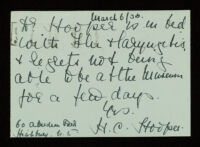 March 6/30.
Dr Hooper is in bed
with Flu & Laryngitis
& regrets not being
able to be at the Museum
for a few days.
Yrs.
H. C. Hooper.
60 Aberdeen Park
Highbury. N. 5